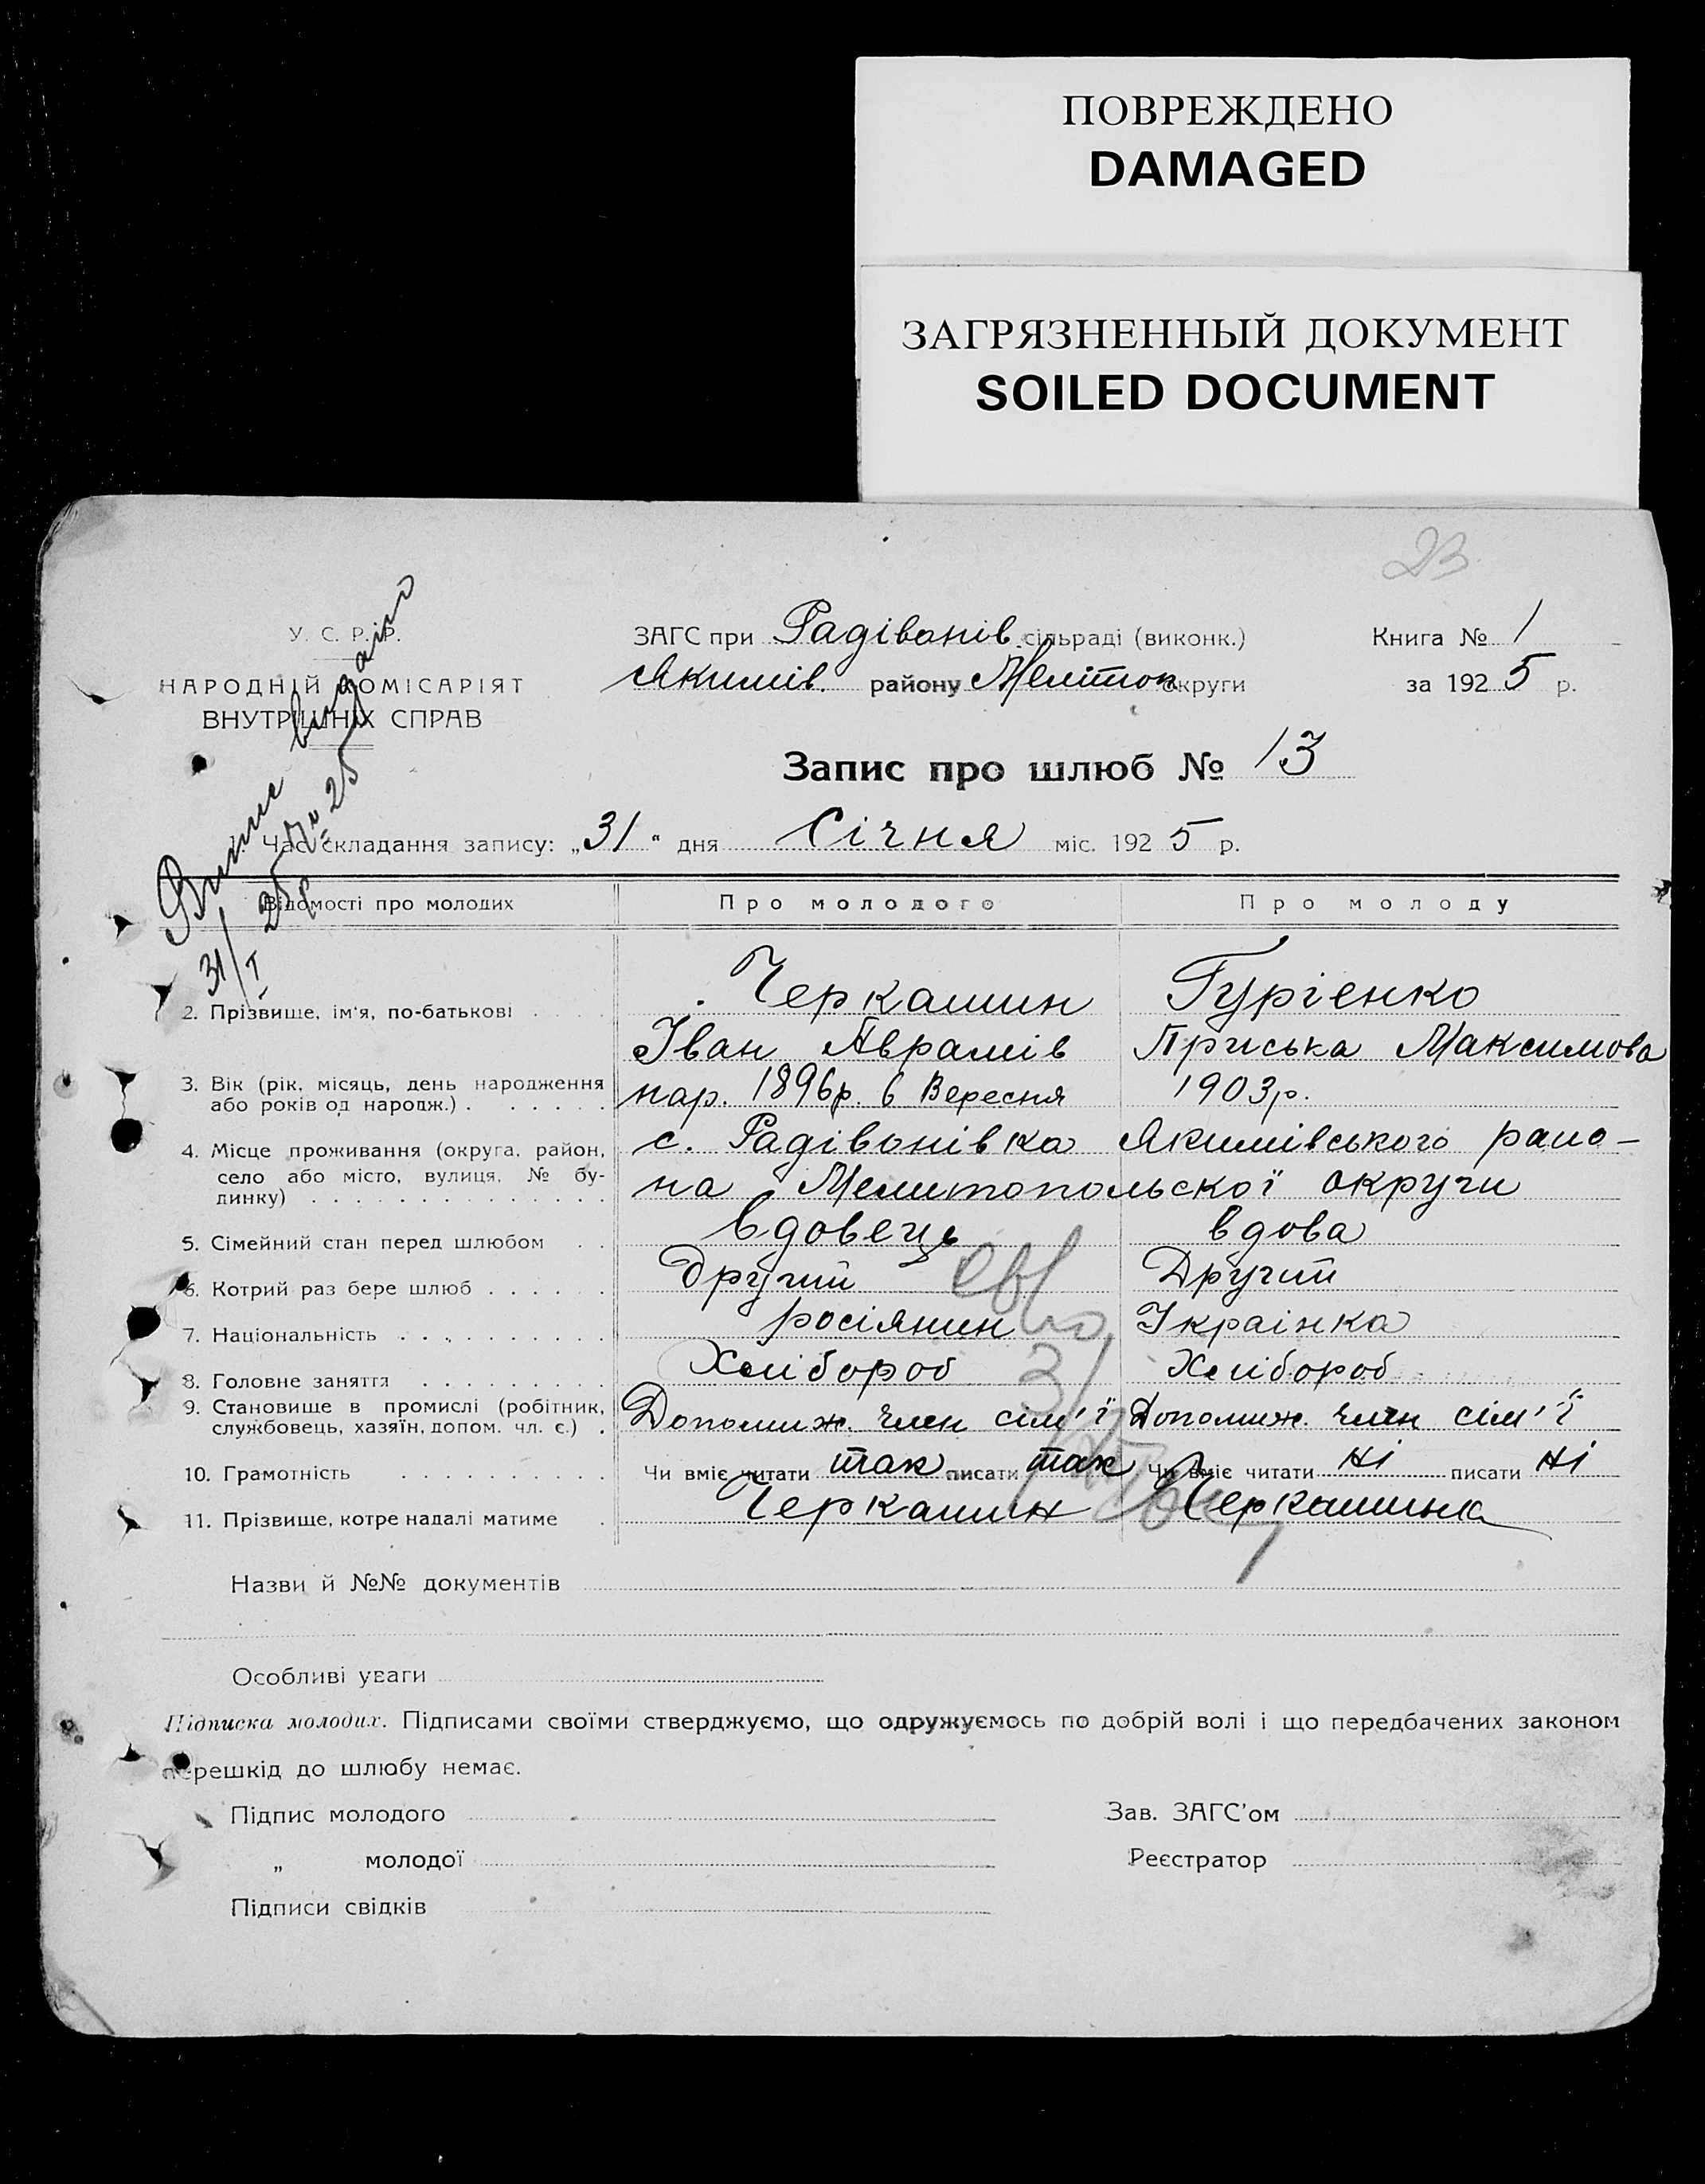 ПОВРЕЖДЕНО
DAMAGED
ЗАГРЯЗНЕННЫЙ ДОКУМЕНТ
SOILED DOCUMENT
23
У. С. Р. Р.
НАРОДНІЙ КОМІСАРІЯТ
ВНУТРІШНІХ СПРАВ
ЗАГС при Радівонів. сільраді (виконк.)
Якимів. району Мелітоп. округи
Книга № 1
за 1925 р.
Запис про шлюб № 13
Випис видано
31/I 25 р № 25
1. Час складання запису: „31“ дня Січня міс. 1925 р.
Відомості про молодих
Про молодого
Про молоду
2. Прізвище, ім'я, по-батькові
Черкашин Гурієнко
Іван Аврамів Приська Максимова
3. Вік (рік, місяць, день народження або років од народж.)
нар. 1896р. 6 Вересня 1903р.
4. Місце проживання (округа, район, село або місто, вулиця, № будинку)
с. Радівонівка Якимівського райо-
на Мелитопольської округи
5. Сімейний стан перед шлюбом вдовець вдова
6. Котрий раз бере шлюб другий Другий
7. Національність росіянин Українка
8. Головне заняття Хлібороб Хлібороб
9. Становище в промислі (робітник, службовець, хазяїн, допом. чл. є.) Допомиж. член сім'ї Допомиж. член сім'ї
10. Грамотність Чи вміє читати так писати так Чи вміє читати ні писати ні
11. Прізвище, котре надалі матиме Черкашин Черкашина
Назви й №№ документів
Особливі уваги
Підписка молодих. Підписами своїми стверджуємо, що одружуємось по добрій волі і що передбачених законом
перешкід до шлюбу немає.
Підпис молодого
Зав. ЗАГС'ом
„ молодої
Реєстратор
Підписи свідків